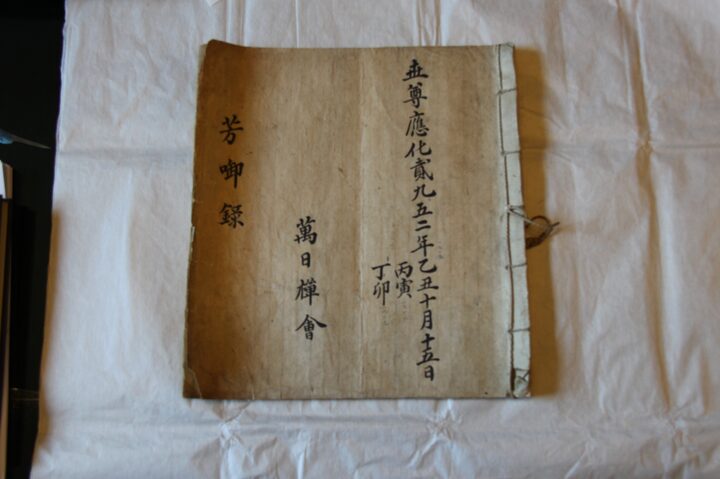 世尊應化貳九五二年乙丑十月十五日
丙寅
丁卯
萬日樿會
芳啣錄